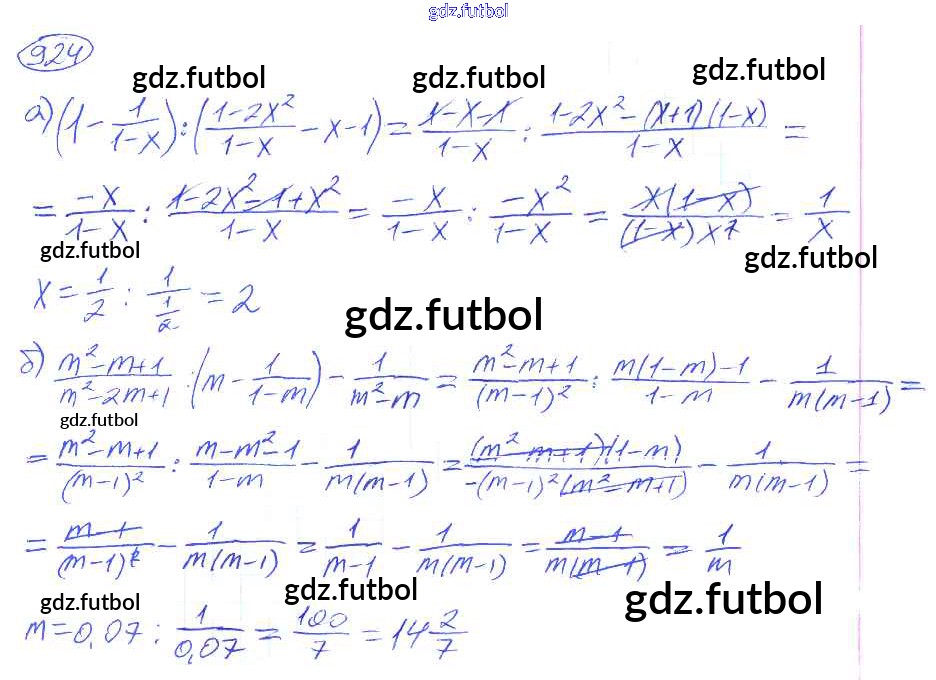 gdz.futbol
924
gdz.futbol gdz.futbol gdz.futbol
а) (1 - 1/(1-x)) : ((1-2x²)/(1-x) - x - 1) = (1-x-1)/(1-x) : (1-2x²-(x+1)(1-x))/(1-x) =
= -x/(1-x) : (1-2x²-1+x²)/(1-x) = -x/(1-x) : -x²/(1-x) = x(1-x)/((1-x)x²) = 1/x
gdz.futbol gdz.futbol
x = 1/2 : 1/(1/2) = 2
gdz.futbol
б) (m²-m+1)/(m²-2m+1) : (m - 1/(1-m)) - 1/(m²-m) = (m²-m+1)/(m-1)² : (m(1-m)-1)/(1-m) - 1/(m(m-1)) =
gdz.futbol
= (m²-m+1)/(m-1)² : (m-m²-1)/(1-m) - 1/(m(m-1)) = (m²-m+1)(1-m)/(-(m-1)²(m²-m+1)) - 1/(m(m-1)) =
= (m-1)/(m-1)² - 1/(m(m-1)) = 1/(m-1) - 1/(m(m-1)) = (m-1)/(m(m-1)) = 1/m
gdz.futbol gdz.futbol gdz.futbol
m = 0,07 : 1/0,07 = 100/7 = 14 2/7